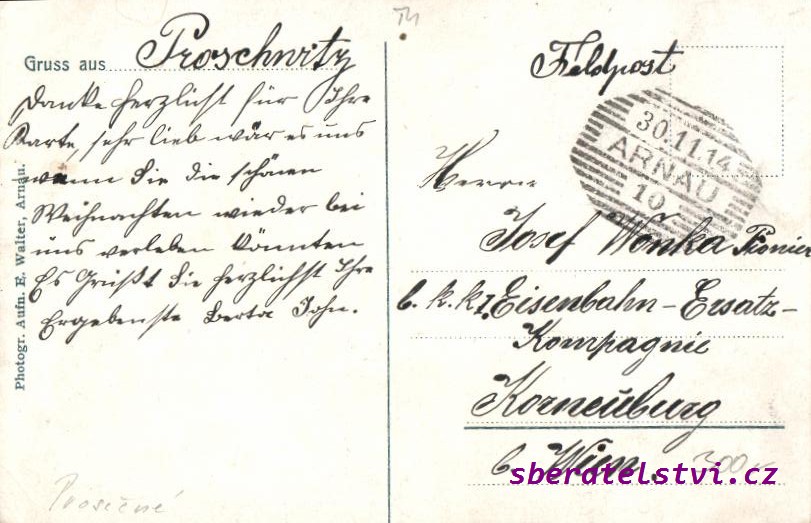 Gruss aus Proschwitz
Danke herzlichst für Ihre
Karte, sehr lieb wär es uns
wenn Sie die schönen
Weihnachten wieder bei
uns verleben könnten
Es Grüßt Sie herzlichst Ihre
Ergebenste Berta John.
Photogr. Aufn. E. Walter, Arnau.
Prosečné
Feldpost
30.11.14
ARNAU
10
Herrn
Josef Wonka Pionier
b. k. k. 1. Eisenbahn-Ersatz-
Kompagnie
Korneuburg
b. Wien.
300
sberatelstvi.cz